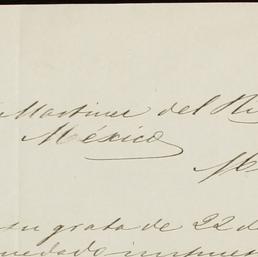 Martinez del Ri
México
M
su grata de 22 d
quedado impues